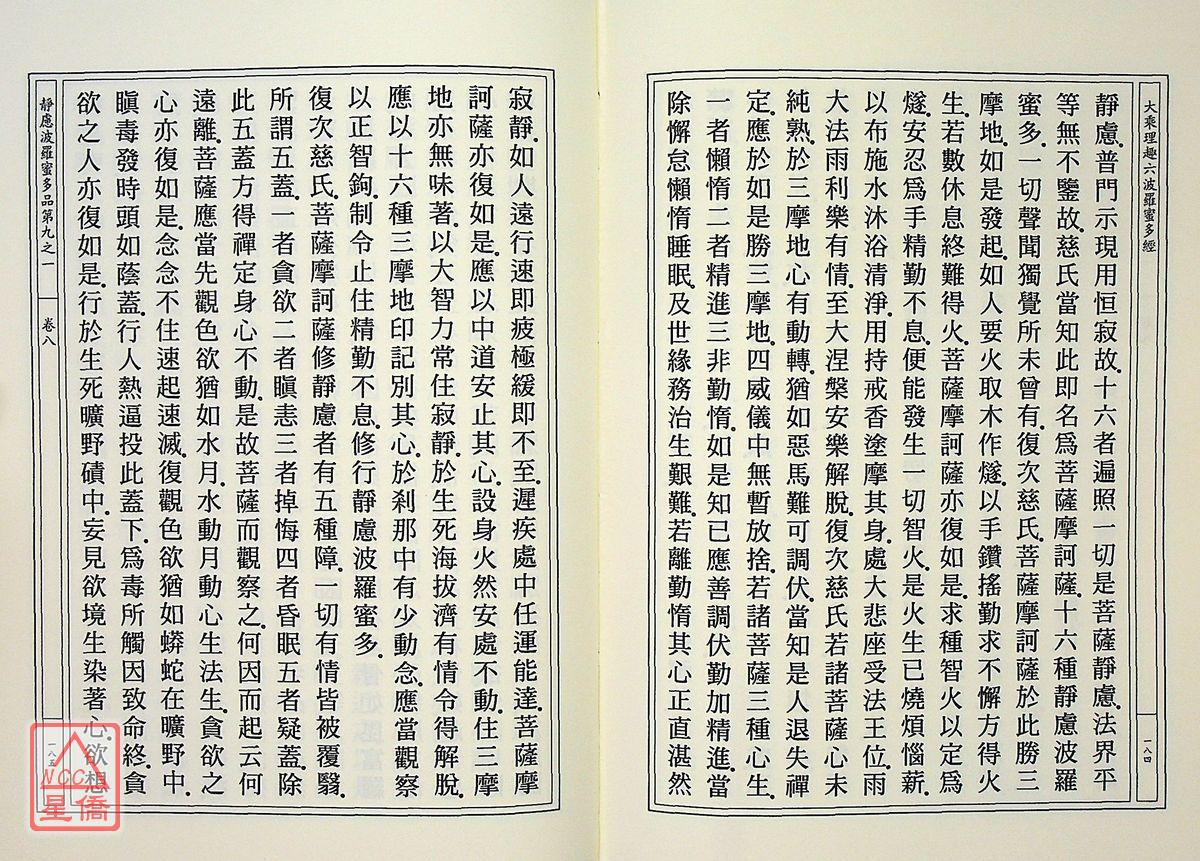 大乘理趣六波羅蜜多經
一八四
靜慮。普門示現用恒寂故。十六者遍照一切是菩薩靜慮。法界平
等無不鑒故。慈氏當知此即名為菩薩摩訶薩。十六種靜慮波羅
蜜多。一切聲聞獨覺所未曾有。復次慈氏。菩薩摩訶薩於此勝三
摩地。如是發起。如人要火取木作燧。以手鑽搖勤求不懈方得火
生。若數休息終難得火。菩薩摩訶薩亦復如是。求種智火以定爲
燧。安忍爲手精勤不息。便能發生一切智火。是火生已燒煩惱薪。
以布施水沐浴清淨。用持戒香塗摩其身。處大悲座受法王位。雨
大法雨利樂有情。至大涅槃安樂解脫。復次慈氏若諸菩薩心未
純熟。於三摩地心有動轉。猶如惡馬難可調伏。當知是人退失禪
定。應於如是勝三摩地。四威儀中無暫放捨。若諸菩薩三種心生
一者懶惰二者精進三非勤惰。如是知已應善調伏勤加精進。當
除懈怠懶惰睡眠。及世緣務治生艱難。若離勤惰其心正直湛然
寂靜。如人遠行速即疲極緩即不至。遲疾處中任運能達。菩薩摩
訶薩亦復如是。應以中道安止其心。設身火然安處不動。住三摩
地亦無味著。以大智力常住寂靜。於生死海拔濟有情令得解脫。
應以十六種三摩地印記別其心。於剎那中有少動念。應當觀察
以正智鉤。制令止住精勤不息。修行靜慮波羅蜜多。
復次慈氏。菩薩摩訶薩修靜慮者有五種障。一切有情皆被覆翳。
所謂五蓋。一者貪欲二者瞋恚三者掉悔四者昏眠五者疑蓋。除
此五蓋方得禪定身心不動。是故菩薩而觀察之。何因而起云何
遠離。菩薩應當先觀色欲猶如水月。水動月動心生法生。貪欲之
心亦復如是。念念不住速起速滅。復觀色欲猶如蟒蛇在曠野中。
瞋毒發時頭如蔭蓋。行人熱逼投此蓋下。爲毒所觸因致命終。貪
欲之人亦復如是。行於生死曠野磧中。妄見欲境生染著心。欲想
靜慮波羅蜜多品第九之一
卷八
一八五
NCC
星僑